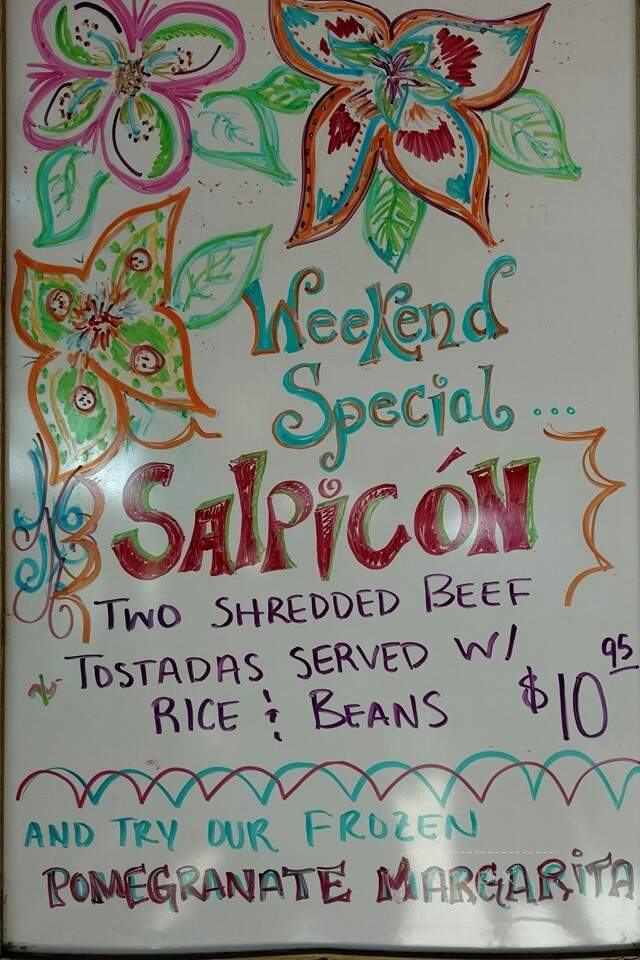 Weekend
Special...
SAlPiCÓN
TWO SHREDDED BEEF
TOSTADAS SERVED W/
RICE & BEANS $10 95
AND TRY OUR FROZEN
POMEGRANATE MARGARiTA